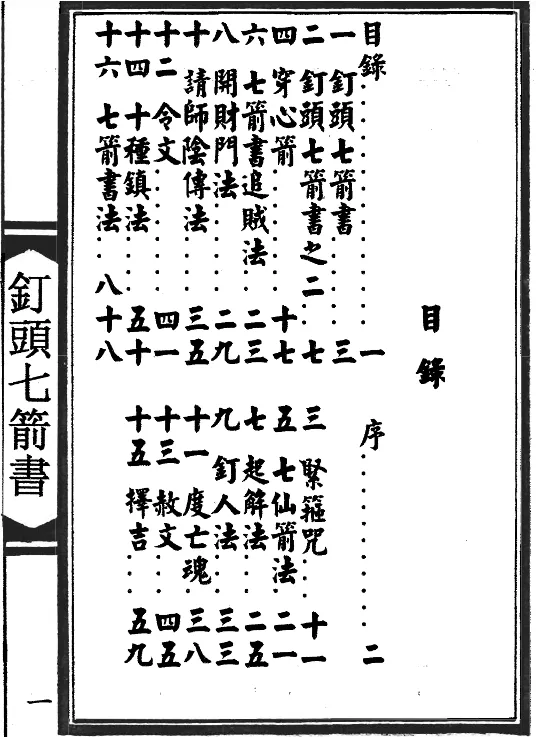 目錄
目錄......一 序......二
一 釘頭七箭書......三
二 釘頭七箭書之二......七 三 緊箍咒......十一
四 穿心箭......十七 五 七仙箭法......二一
六 七箭書追賊法......二三 七 起解法......二五
八 開財門法......二九 九 釘人法......三三
十 請師陰傳法......三五 十一 度亡魂......三八
十二 令文......四一 十三 赦文......四五
十四 十種鎮法......五十 十五 擇吉......五九
十六 七箭書法......八十八
釘頭七箭書
一